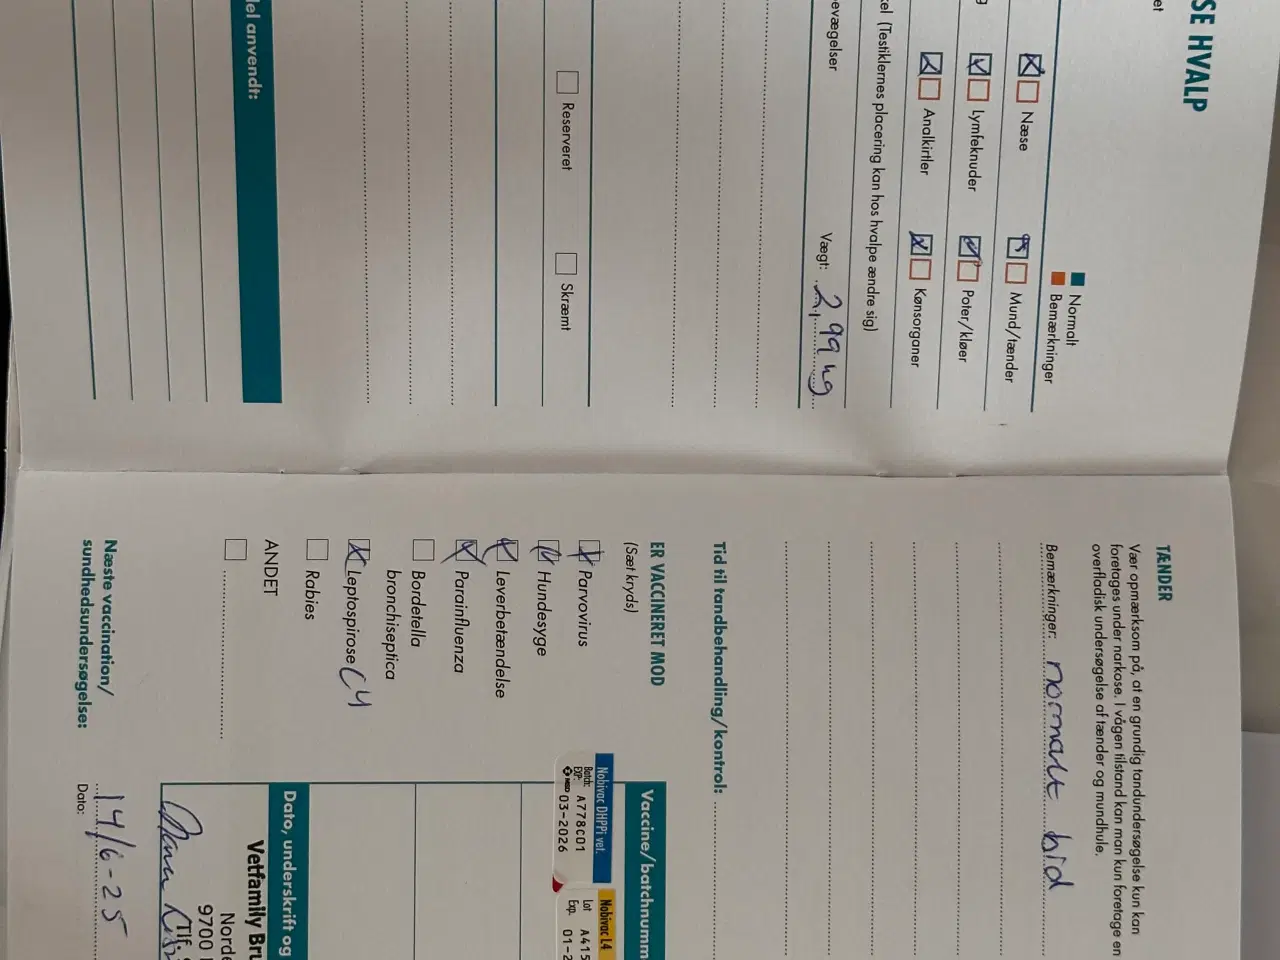 SE HVALP
et
Normalt
Bemærkninger
Næse
Mund/tænder
g
Lymfeknuder
Poter/kløer
Analkirtler
Kønsorganer
el (Testiklernes placering kan hos hvalpe ændre sig)
evægelser
Vægt: 2,99 kg
Reserveret
Skræmt
el anvendt:
TÆNDER
Vær opmærksom på, at en grundig tandundersøgelse kun kan
foretages under narkose. I vågen tilstand kan man kun foretage en
overfladisk undersøgelse af tænder og mundhule.
Bemærkninger: normalt bid
Tid til tandbehandling/kontrol:
ER VACCINERET MOD
(Sæt kryds)
Parvovirus
Hundesyge
Leverbetændelse
Parainfluenza
Bordetella
bronchiseptica
Leptospirose L4
Rabies
ANDET
Vaccine/batchnumm
Nobivac DHPPi vet.
Batch: A778C01
EXP: 03-2026
MSD
Nobivac L4
Lot A415
Exp. 01-2
Dato, underskrift og
Vetfamily Bru
Norde
9700
Tlf.
Næste vaccination/
sundhedsundersøgelse:
Dato: 14/6-25